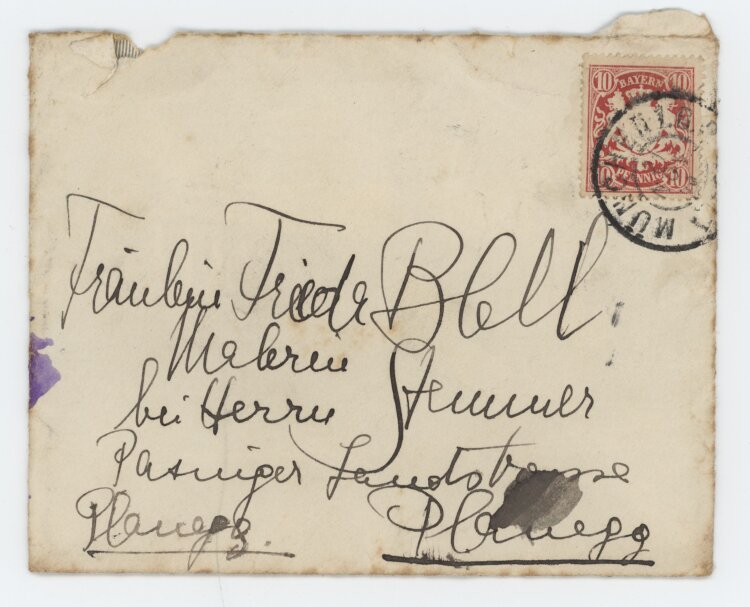 10 BAYERN 10
10 PFENNIG 10
MÜNCHEN
Fräulein Frieda Blell
Malerin
bei Herrn Stemmer
Pasinger Landstrasse
Planegg. Planegg